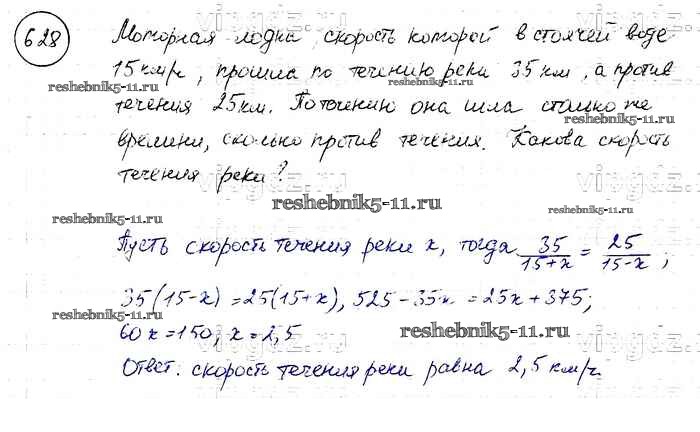 628
Моторная лодка, скорость которой в стоячей воде
15 км/ч, прошла по течению реки 35 км, а против
течения 25 км. По течению она шла столько же
времени, сколько против течения. Какова скорость
течения реки?
Пусть скорость течения реки x, тогда 35/(15+x) = 25/(15-x);
35(15-x)=25(15+x), 525-35x=25x+375;
60x=150, x=2,5
Ответ. скорость течения реки равна 2,5 км/ч
reshebnik5-11.ru
reshebnik5-11.ru
reshebnik5-11.ru
reshebnik5-11.ru
reshebnik5-11.ru
reshebnik5-11.ru
reshebnik5-11.ru